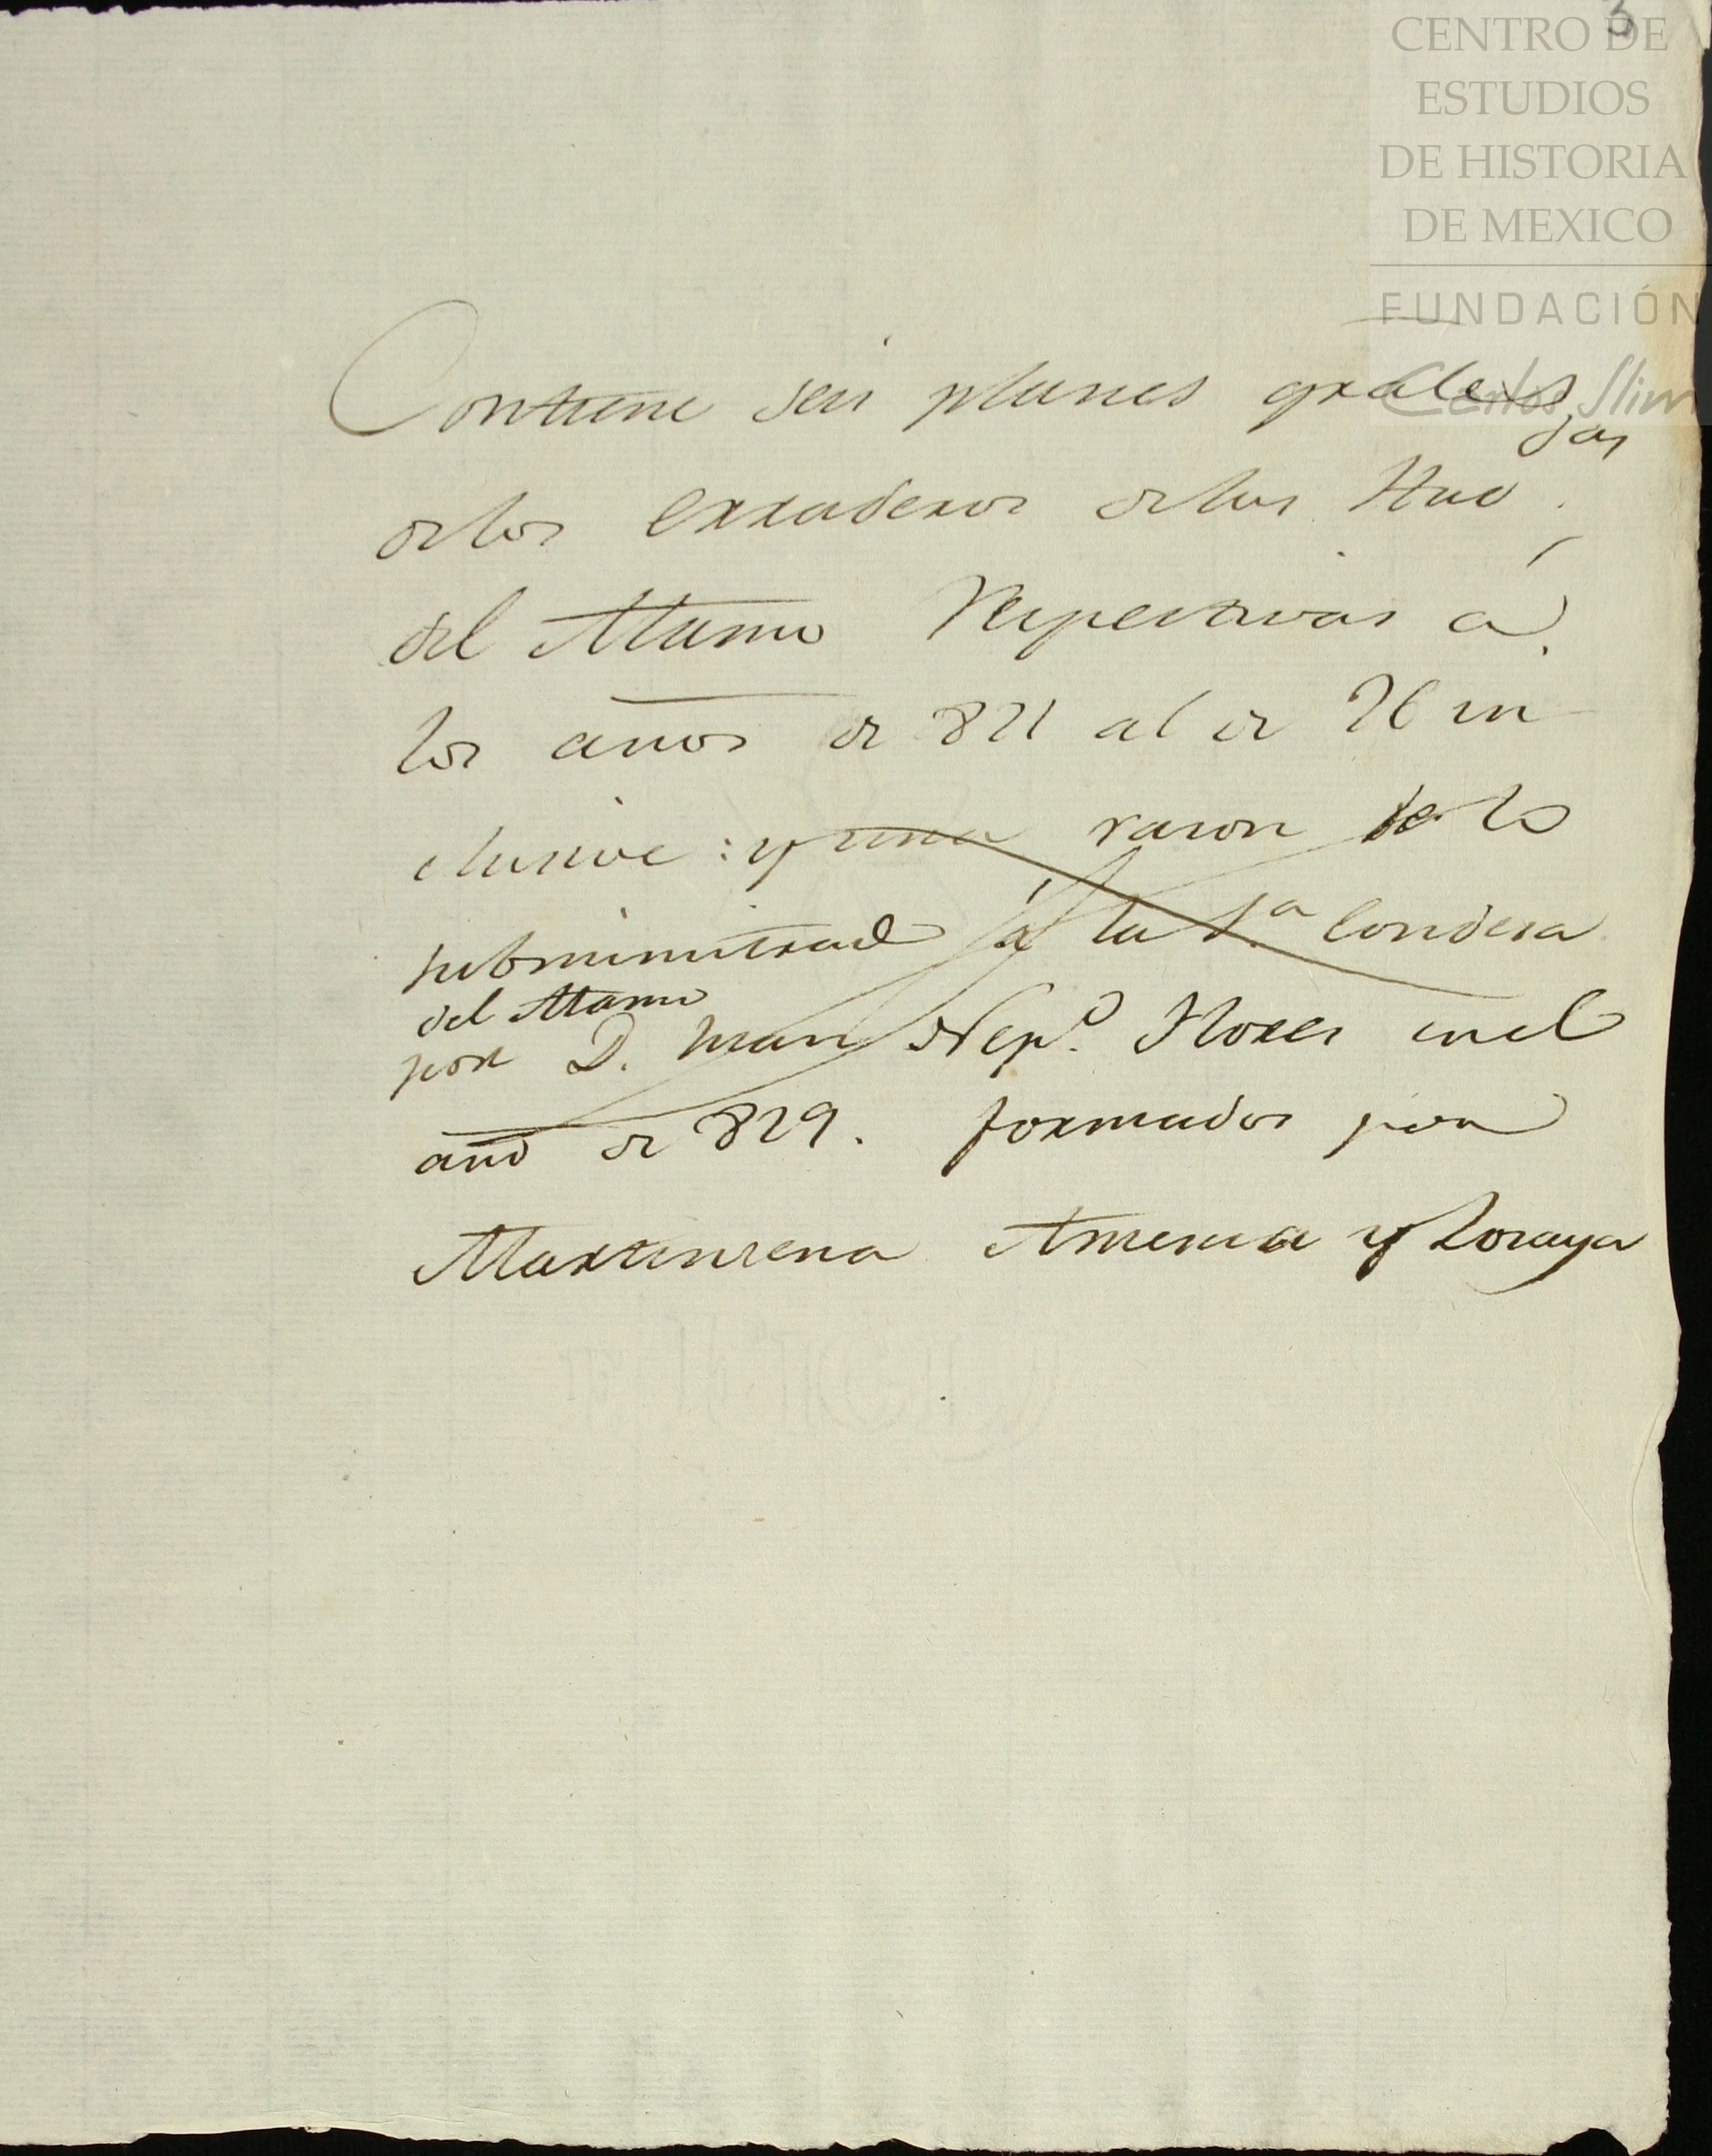 3
CENTRO DE
ESTUDIOS
DE HISTORIA
DE MEXICO
FUNDACIÓN
Carlos Slim
Contiene seis planes grales
de los erraderos de las Hac.das
del Alamo respectivas á
los años de 821 al de 26 in
clusive: y una rason de lo
subministrado á la S.ª Condesa
del Alamo
por D. Juan Nep.º Flores en el
año de 829. formados por
Martinrena America y Loraya